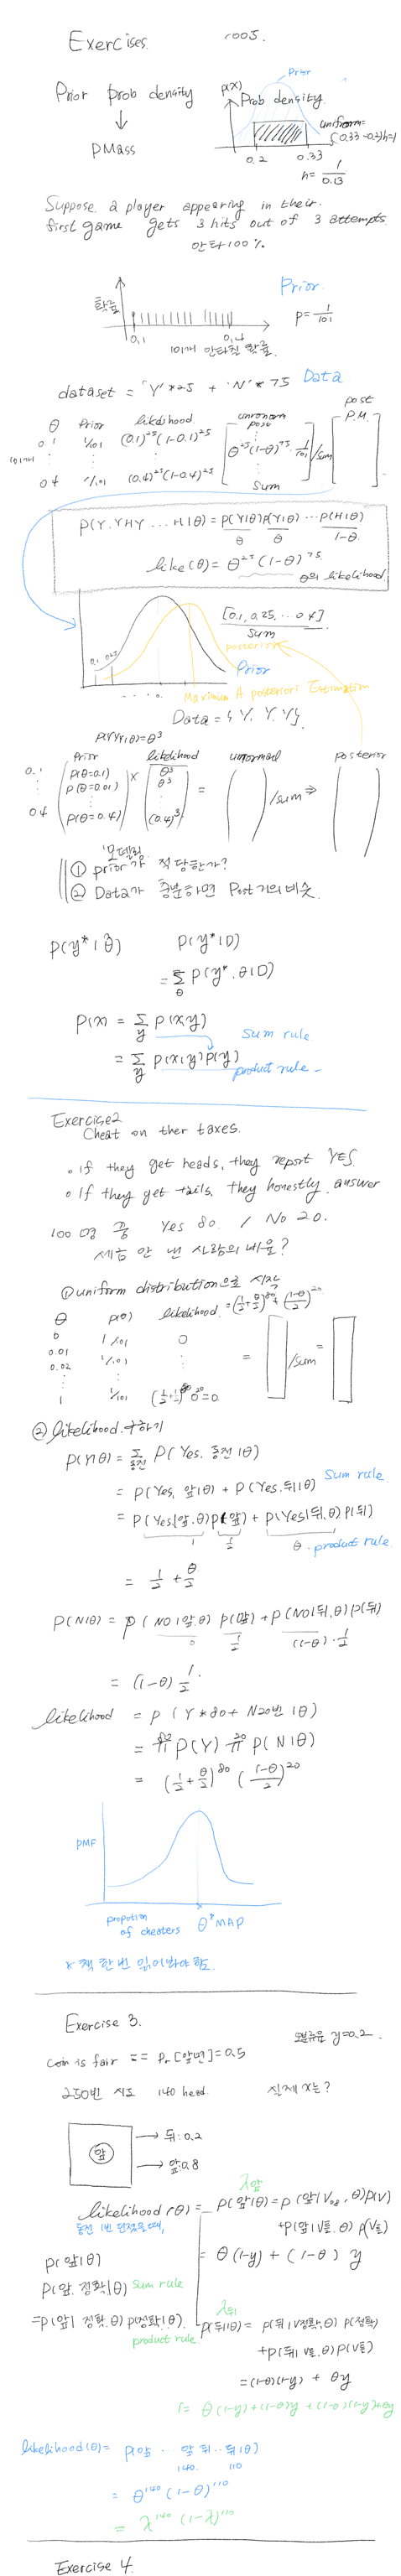 Exercises.
1005.
Prior prob density
pMass
p(x)
Prior
Prob density.
uniform=
(0.33-0.2)h=1
0.2
0.33
h= 1/0.13
Suppose a player appearing in their
first game gets 3 hits out of 3 attempts
안타100%
확률
0.1
0.4
101개 안타칠 확률.
Prior.
p= 1/101
dataset = 'Y'*25 + 'N'* 75 Data
θ Prior likelihood unnorm post post P.M.
0.1 1/101 (0.1)^25(1-0.1)^25
101개 θ^25(1-θ)^75 · 1/101 /sum
0.4 1/101 (0.4)^25(1-0.4)^25
Sum
p(Y.YHY ... H|θ) = p(Y|θ)p(Y|θ) ... p(H|θ)
θ θ 1-θ
like(θ) = θ^25 (1-θ)^75.
θ의 likelihood.
[0.1, 0.25, ... 0.4]
Sum
posterior
0.1 0.25
Prior
Maximum A posteriori Estimation
Data = { Y, Y, Y}
p(YYY|θ)=θ^3
Prior likelihood unnormed posterior
0.1 p(θ=0.1) × θ^3
p(θ=0.01) θ^3 = /sum ⇒
0.4 p(θ=0.4) (0.4)^3
'모델링
① prior가 적당한가?
② Data가 충분하면 Post 거의 비슷.
p(y*|θ̂) p(y*|D)
= Σ_θ p(y*, θ|D)
p(x) = Σ_y p(x,y)
Sum rule
= Σ_y p(x|y)p(y)
product rule
Exercise2
Cheat on ther taxes.
• If they get heads, they report YES.
• If they get tails, they honestly answer
100명 중 Yes 80. / No 20.
세금 안 낸 사람의 비율?
① uniform distribution으로 시작
θ p(θ) likelihood = (1/2+θ/2)^80 + (1-θ/2)^20
0 1/101 0
0.01 1/101
0.02 = /sum =
1 1/101 (1/2+1/2)^80 0^20=0
② likelihood 구하기
p(Y|θ) = Σ_동전 p(Yes, 동전|θ)
= p(Yes, 앞|θ) + p(Yes,뒤|θ) Sum rule
= p(Yes|앞,θ)p(앞) + p(Yes|뒤,θ)p(뒤)
1 1/2 θ product rule
= 1/2 + θ/2
p(N|θ) = p(NO|앞,θ) p(앞) + p(NO|뒤,θ)p(뒤)
0 1/2 (1-θ) · 1/2
= (1-θ) 1/2
likelihood = p(Y*80+ N20번|θ)
= π^80 p(Y) π^20 p(N|θ)
= (1/2+θ/2)^80 ((1-θ)/2)^20
PMF
propotion of cheaters
θ* MAP
* 책 한번 읽어봐야 함.
Exercise 3.
오분류율 y=0.2.
coin is fair == Pr[앞면]=0.5
250번 시도 140 head.
실제 x는?
앞
→ 뒤:0.2
→ 앞:0.8
λ앞
likelihood(θ)= p(앞|θ)=p(앞|V정확,θ)p(V)
동전 1번 던졌을 때,
+p(앞|V틀,θ)p(V틀)
p(앞|θ)
= θ(1-y) + (1-θ) y
p(앞,정확|θ) sum rule
λ뒤
=p(앞|정확,θ) p(정확|θ).
product rule
p(뒤|θ)= p(뒤|V정확,θ) p(정확)
+p(뒤|V틀,θ)p(V틀)
=(1-θ)(1-y) + θy
1= θ(1-y)+(1-θ)y + (1-θ)(1-y)+θy
likelihood(θ)= p(앞 ... 앞 뒤..뒤|θ)
140. 110
= θ^140 (1-θ)^110
= λ^140 (1-λ)^110
Exercise 4.